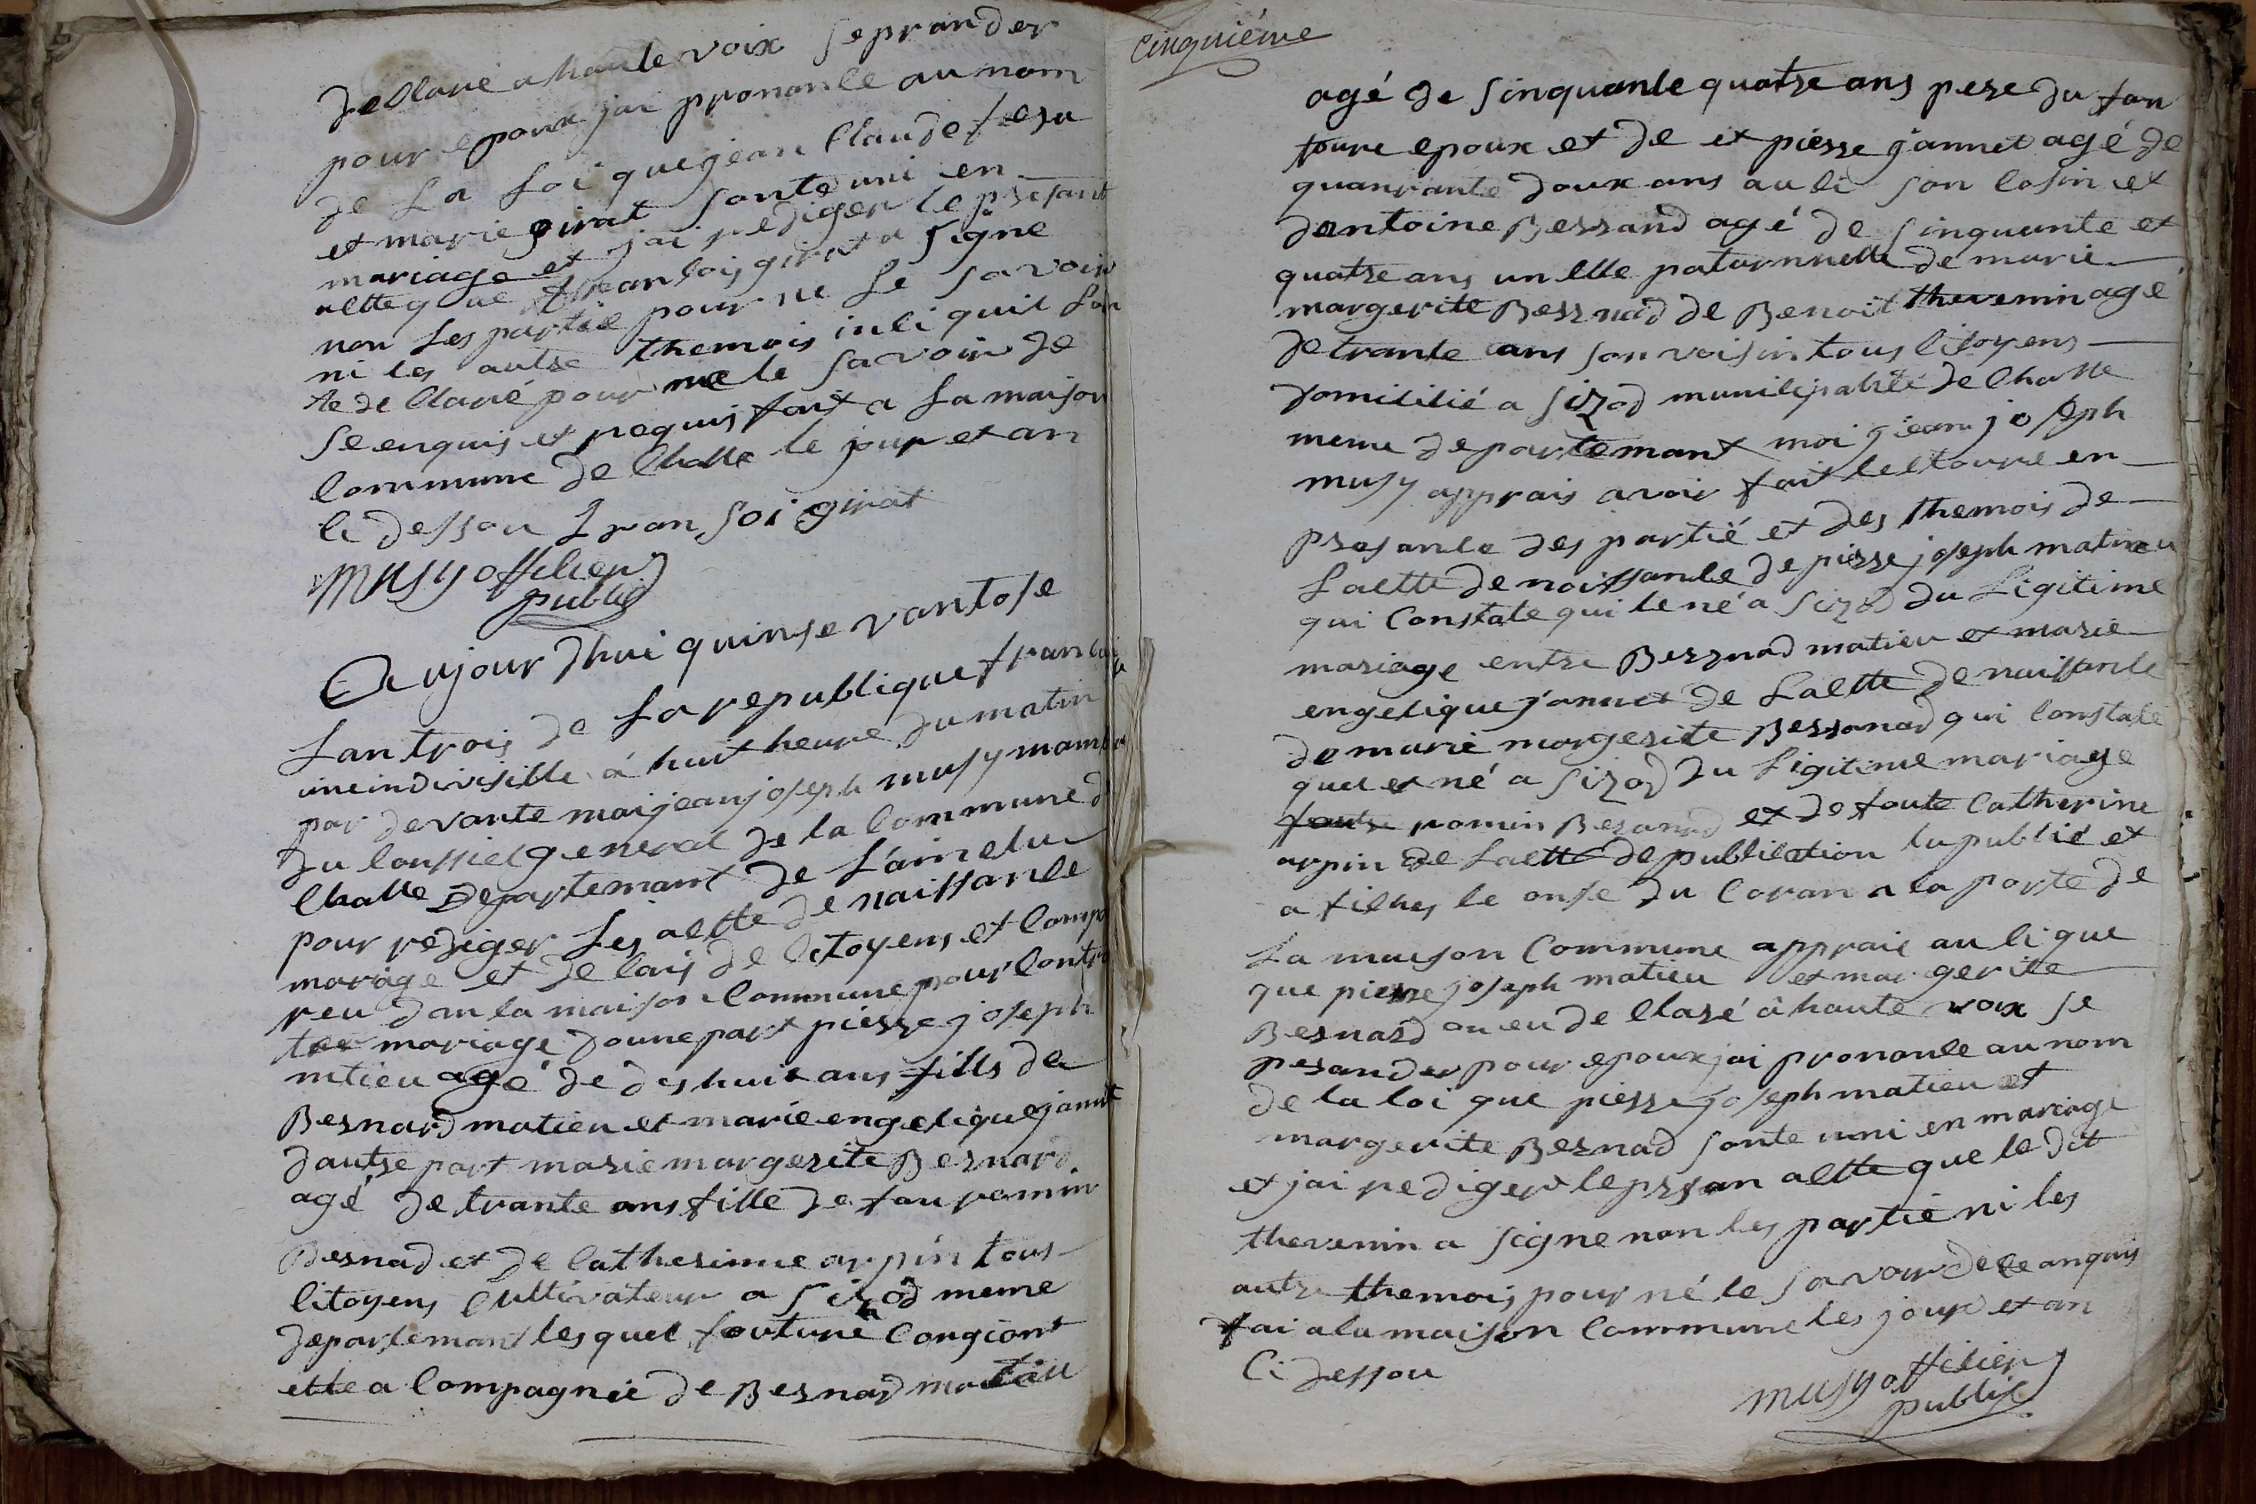 declaré a haute voix se prander
pour epoux jai prononce au nom
de la loi que jean claude fesu
et marie girat sonte uni en
mariage et jai rediger le presant
actte que francois girat a signe
non les partie pour ne le savoir
ni les autre themois inci quil son
te declaré pour ne le savoir de
se enquis et requis fait a la maison
commune de challe le jour et an
ci dessou fransoi girat
musy officier
public
aujourdhui quinse vantose
lan trois de la republique francai
une indivisible a huit heure du matin
par devante moi jean joseph musy mambr
du conssiel general de la commune d
challe departemant de lain elu
pour rediger les actte de naissance
mariage et de cais de citoyens et comp
reu dan la maison commune pour contr
ter mariage doune part pierre joseph
mtieu agé de des huit ans fills de
Bernard matieu et marie engelique jannet
dautre part marie margerite Bernard
agé de trante ans fille de fau romin
Bernad et de catherinne arpin tous
citoyens cultivateur a Sizod meme
departemant lesquel fouture congiont
ette a compagnie de Bernard matieu
cinquiéme
agé de sinquante quatre ans pere du fou
toure epoux et de et pierre jannet agé de
quanrante doux ans auci son cosin et
dantoine Berrand agé de sinquante et
quatre ans unclle paturnnelle de marie
margerite Bernad de Benoit thevenin agé
de trante ans son voisin tous citoyens
domicilié a Sizod municipalité de challe
meme departemant moi jean joseph
musy apprais avoir fait lectoure en
presance des partié et des themois de
lactte de noissance de pierre joseph matieu
qui constate qui le né a Sizod du ligitime
mariage entre Bernad matieu et marie
engelique jannet de lactte de naissance
de marie margerite Bernard qui constate
quel et né a Sizod du ligitime mariage
foute romin Bernard et de foute catherine
arpin de lactte de publication lu publié et
a fiches le onse du coran a la porte de
la maison commune apprais auci que
que pierre joseph matieu et margerite
Bernard ou eu declaré à haute voix se
perander pour epoux jai prononce au nom
de la loi que pierre joseph matieu et
margerite Bernad sonte uni en mariage
et jai rediger le presan actte que le dit
thevenin a signe non les partié ni les
autre themois pour né le savoir de ce anquis
fai a la maison commune les jour et an
ci dessou
musy officier
public